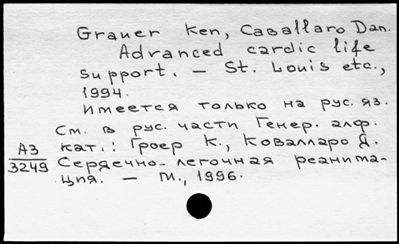 Grauer Ken, Cavallaro Dan.
Advanced cardic life
support. – St. Louis etc.,
1994.
Имеется только на рус. яз.
См. в рус. части Генер. алф.
кат.: Гроер К., Коваллaро Д.
Сердечно-легочная реанима-
ция. – М., 1996.
А3
3249